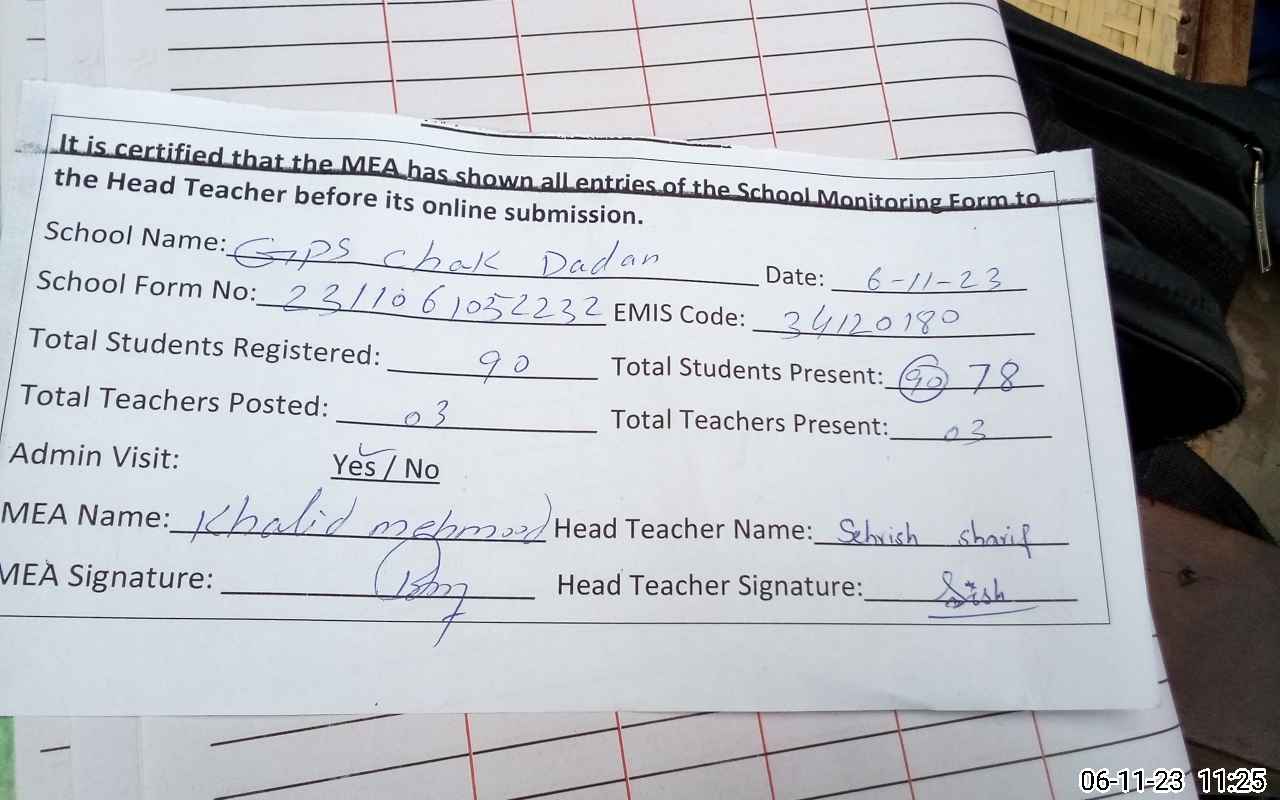 It is certified that the MEA has shown all entries of the School Monitoring Form to
the Head Teacher before its online submission.
School Name: GPS Chak Dadan Date: 6-11-23
School Form No: 2311061052232 EMIS Code: 34120180
Total Students Registered: 90 Total Students Present: 90 78
Total Teachers Posted: 03 Total Teachers Present: 03
Admin Visit: Yes / No
MEA Name: Khalid mehmood Head Teacher Name: Sehrish sharif
MEA Signature: Head Teacher Signature:
06-11-23 11:25